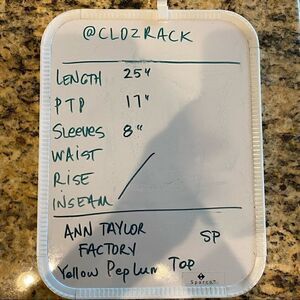 @CLOZRACK
LENGTH 25"
PTP 17"
SLEEVES 8"
WAIST
RISE
INSEAM
ANN TAYLOR SP
FACTORY
Yellow Peplum Top
Sparco